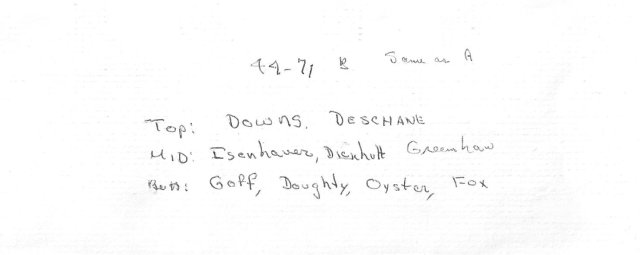 44-71 B Same as A
Top: DOWNS, DESCHANE
MID: Isenhaver, Dienhutt Greenhaw
Butt: Goff, Doughty, Oyster, Fox